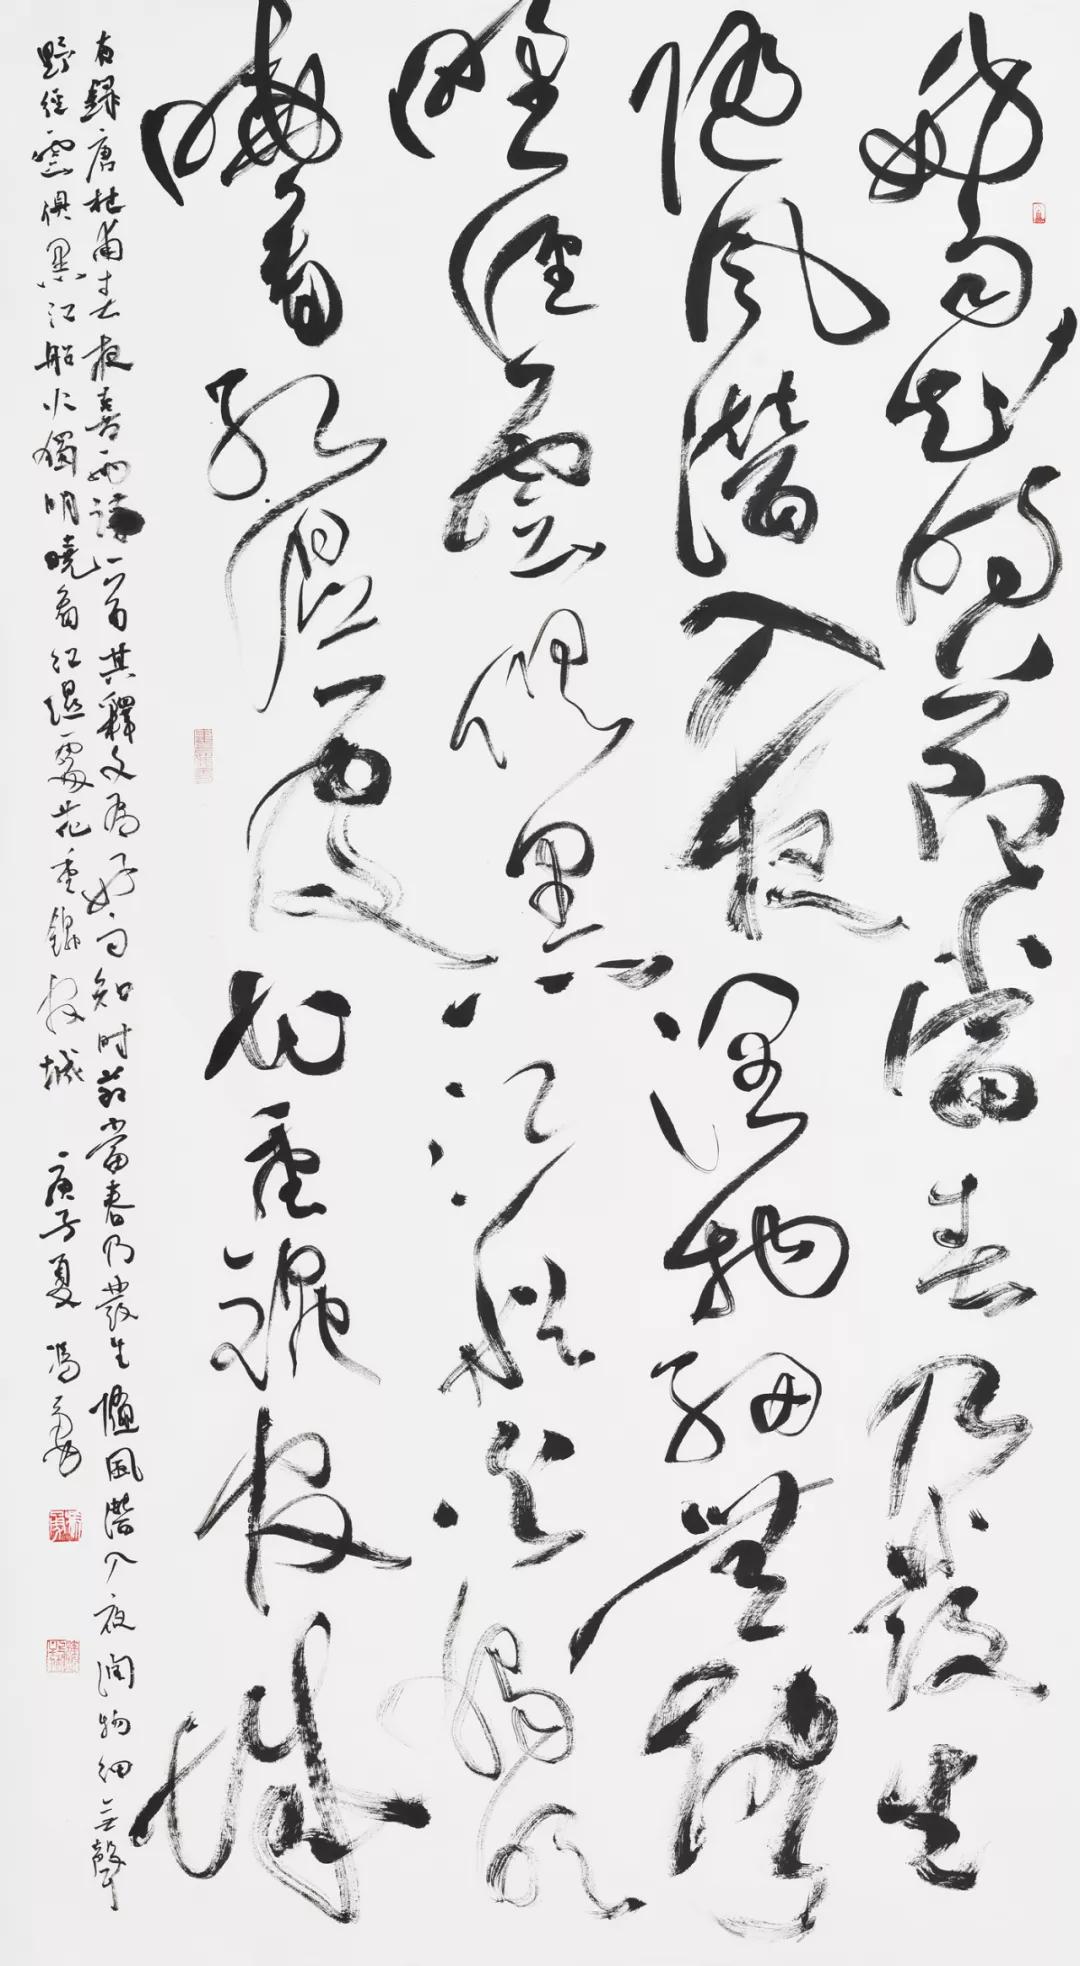 好雨知時節當春乃發生
隨風潛入夜潤物細無聲
野徑雲俱黑江船火獨明
曉看紅濕處花重錦官城
右錄唐杜甫春夜喜雨詩一首其釋文為好雨知時節當春乃發生隨風潛入夜潤物細无聲
野徑雲俱黑江船火獨明曉看紅濕處花重錦官城 庚子夏 馮